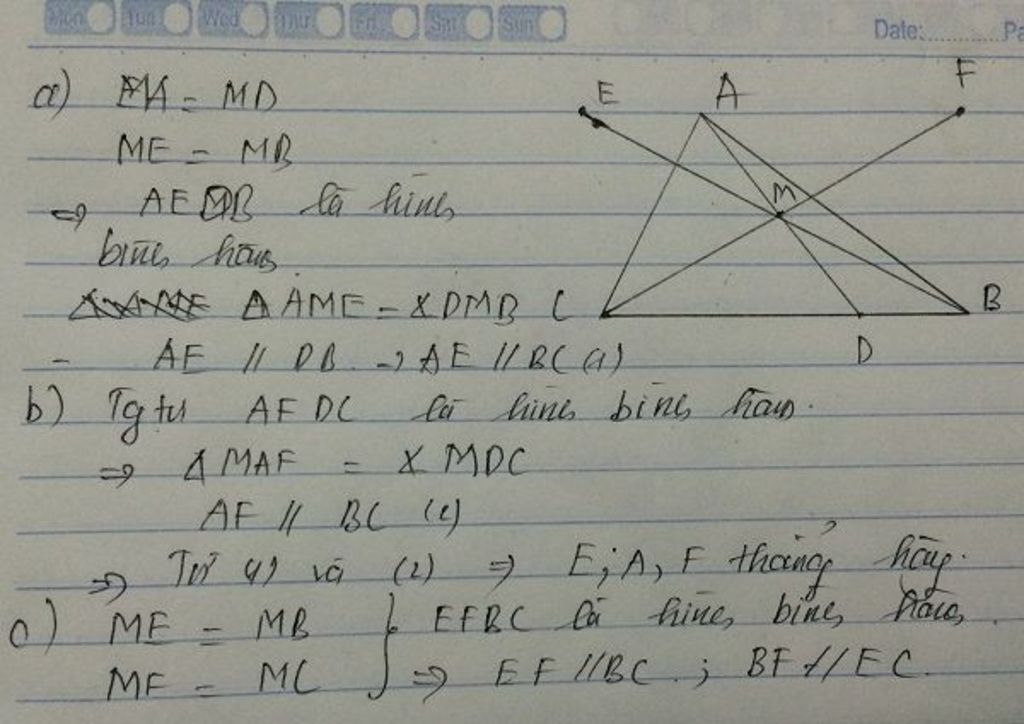 Mon Tue Wed Thu Fri Sat Sun
Date:............Pa
a) MA = MD
ME = MB
=> AEDB là hình
bình hành.
Δ AME = Δ DMB
- AE // DB. -> AE // BC (1)
E A F
M
C D B
b) Tg tự AFDC là hình bình hành.
=> Δ MAF = Δ MDC
AF // BC (2)
=> Từ (1) và (2) => E; A, F thẳng hàng.
c) ME = MB } EFBC là hình bình hành.
MF = MC => EF // BC. ; BF // EC.